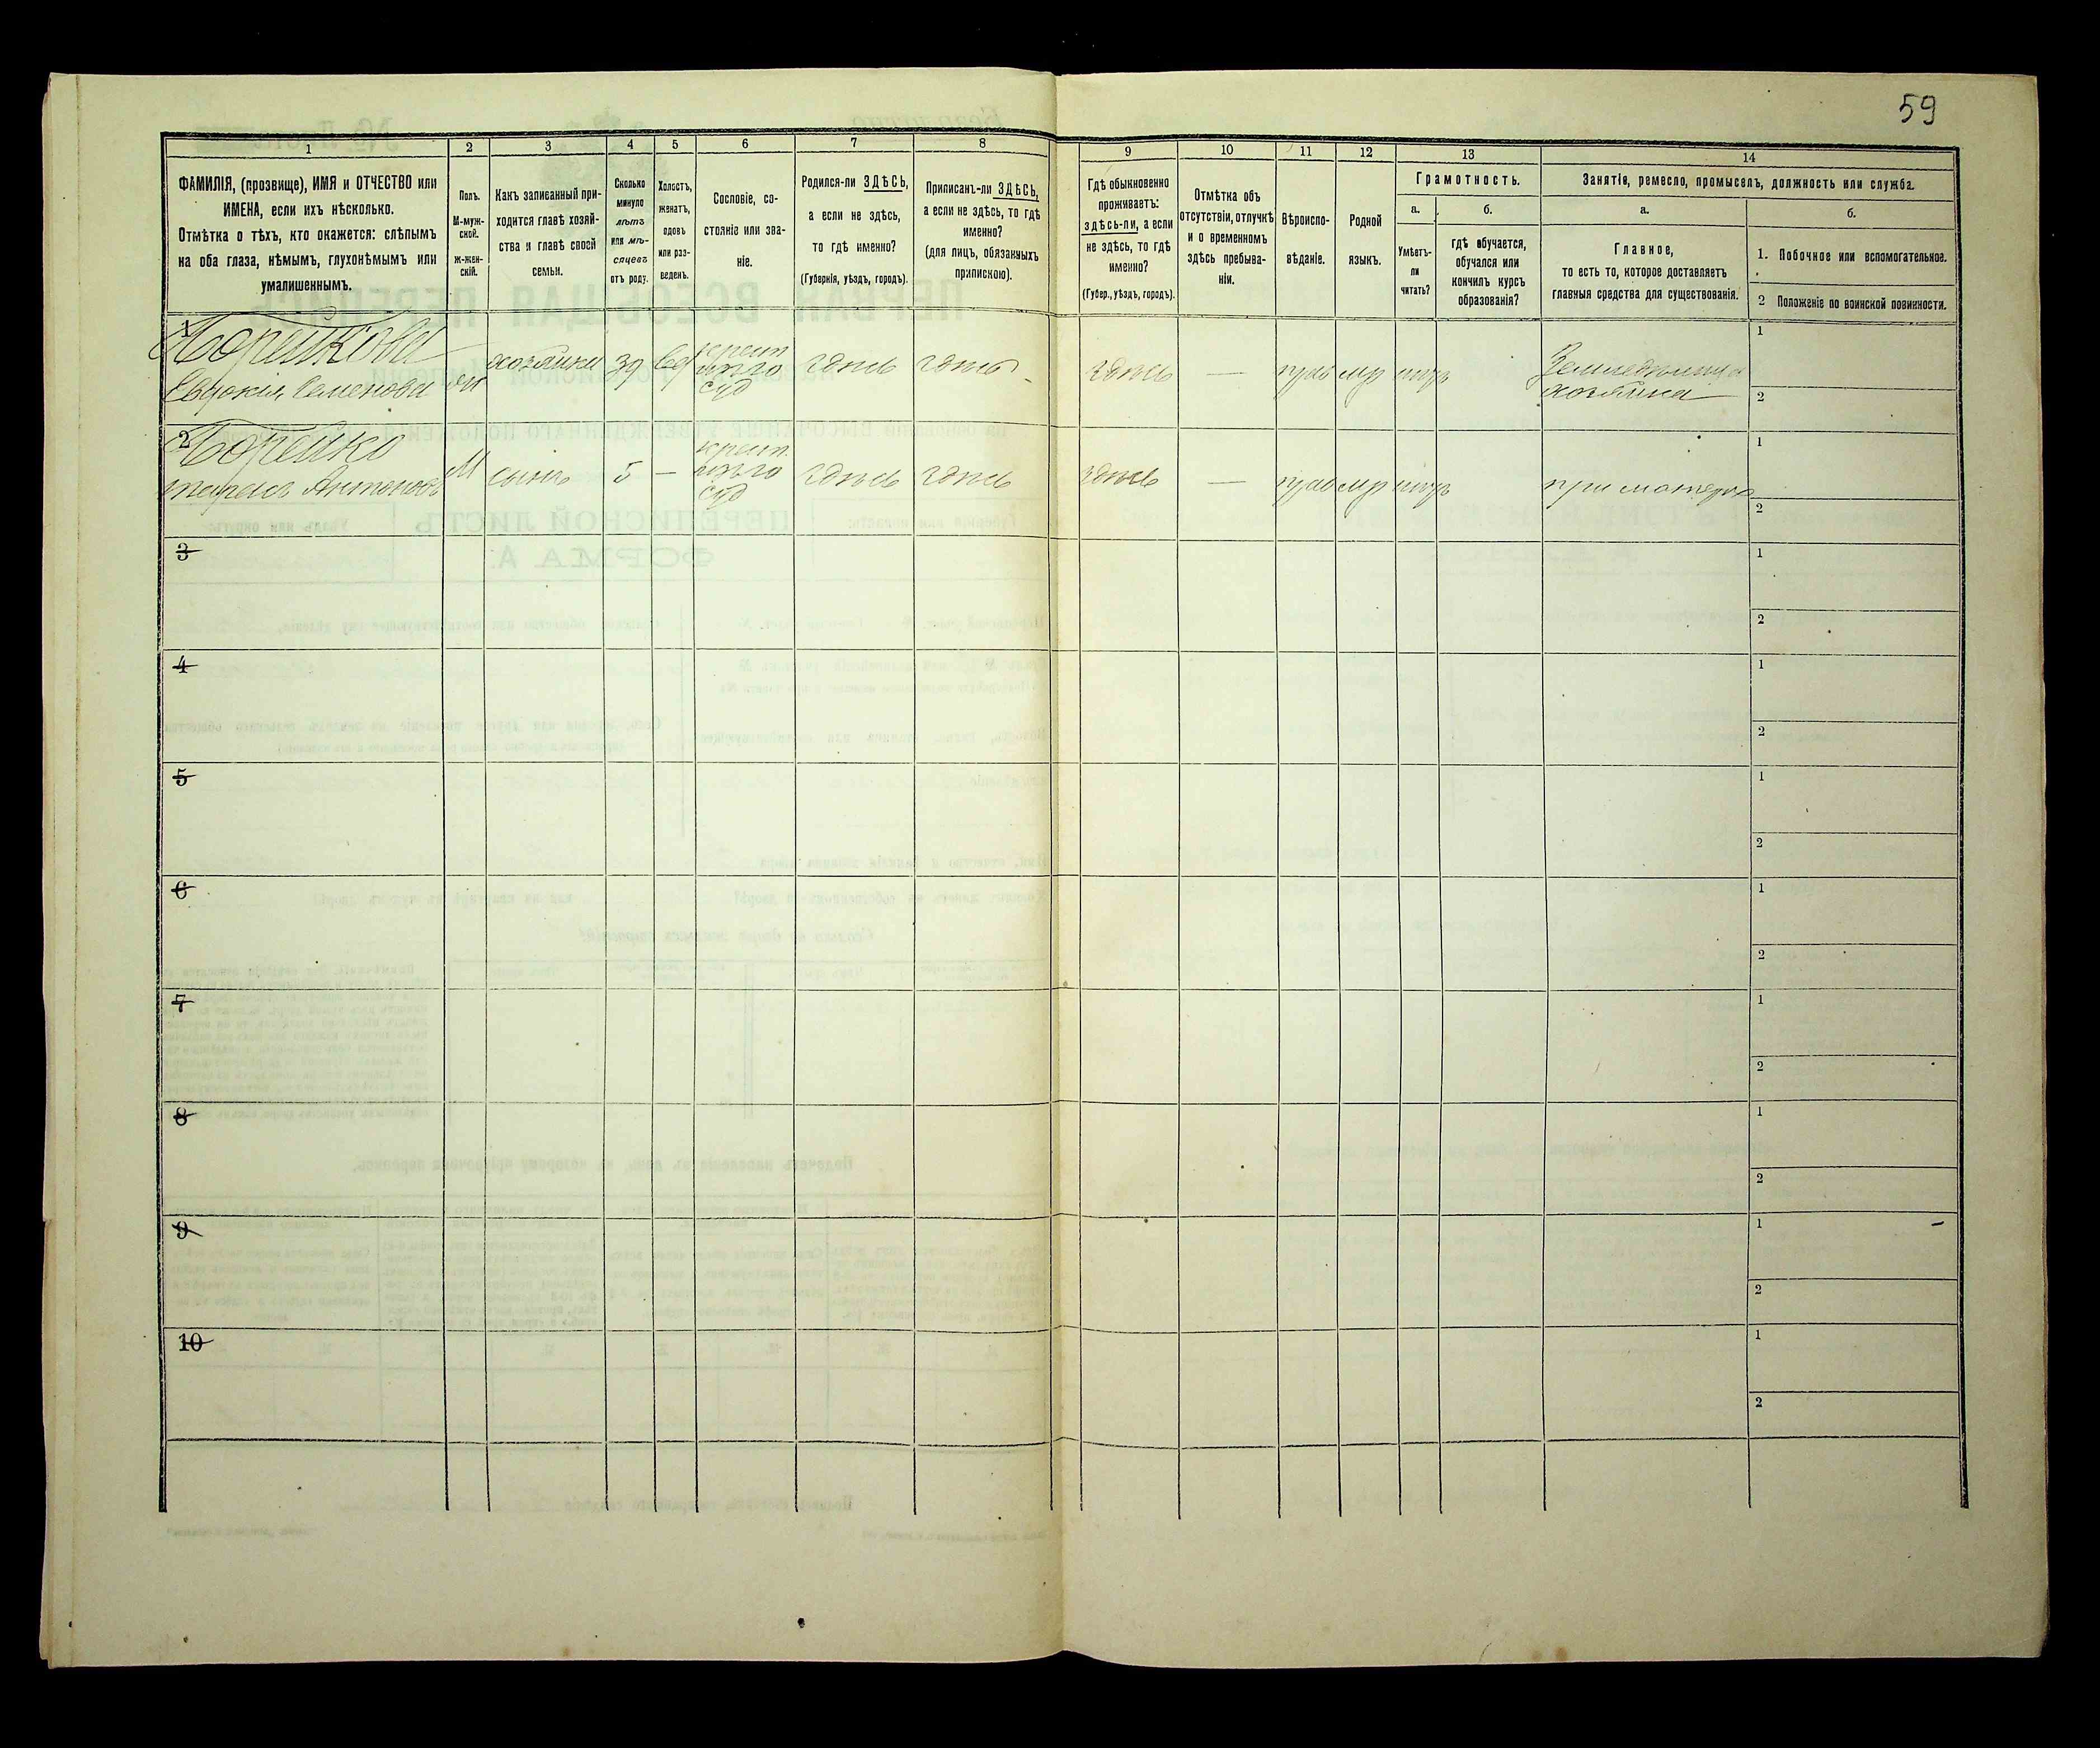 59
1
2
3
4
5
6
7
8
9
10
11
12
13
14
ФАМИЛІЯ, (прозвище), ИМЯ и ОТЧЕСТВО или
ИМЕНА, если ихъ нѣсколько.
Отмѣтка о тѣхъ, кто окажется: слѣпымъ
на оба глаза, нѣмымъ, глухонѣмымъ или
умалишеннымъ.
Полъ.
М-муж-
ской.
ж-жен-
скій.
Какъ записанный при-
ходится главѣ хозяй-
ства и главѣ своей
семьи.
Сколько
минуло
лѣтъ
или мѣ-
сяцевъ
отъ роду.
Холостъ,
женатъ,
вдовъ
или раз-
веденъ.
Сословіе, со-
стояніе или зва-
ніе.
Родился-ли ЗДѢСЬ,
а если не здѣсь,
то гдѣ именно?
(Губернія, уѣздъ, городъ).
Приписанъ-ли ЗДѢСЬ,
а если не здѣсь, то гдѣ
именно?
(для лицъ, обязанныхъ
припискою).
Гдѣ обыкновенно
проживаетъ:
здѣсь-ли, а если
не здѣсь, то гдѣ
именно?
(Губер., уѣздъ, городъ).
Отмѣтка объ
отсутствіи, отлучкѣ
и о временномъ
здѣсь пребыва-
ніи.
Вѣроиспо-
вѣданіе.
Родной
языкъ.
Грамотность.
а.
Умѣетъ-
ли
читать?
б.
гдѣ обучается,
обучался или
кончилъ курсъ
образованія?
Занятіе, ремесло, промыселъ, должность или служба.
а.
Главное,
то есть то, которое доставляетъ
главныя средства для существованія.
б.
1. Побочное или вспомогательное.
2 Положеніе по воинской повинности.
1
Евдокія Семенова
хозяйка
39
вд
крест
здѣсь
здѣсь
здѣсь
—
прав
мр
хозяйка
1
2
2
Антоновъ
М
сынъ
5
—
крест.
здѣсь
здѣсь
здѣсь
—
прав
мр
при матери
1
2
3
1
2
4
1
2
5
1
2
6
1
2
7
1
2
8
1
2
9
1
2
10
1
2